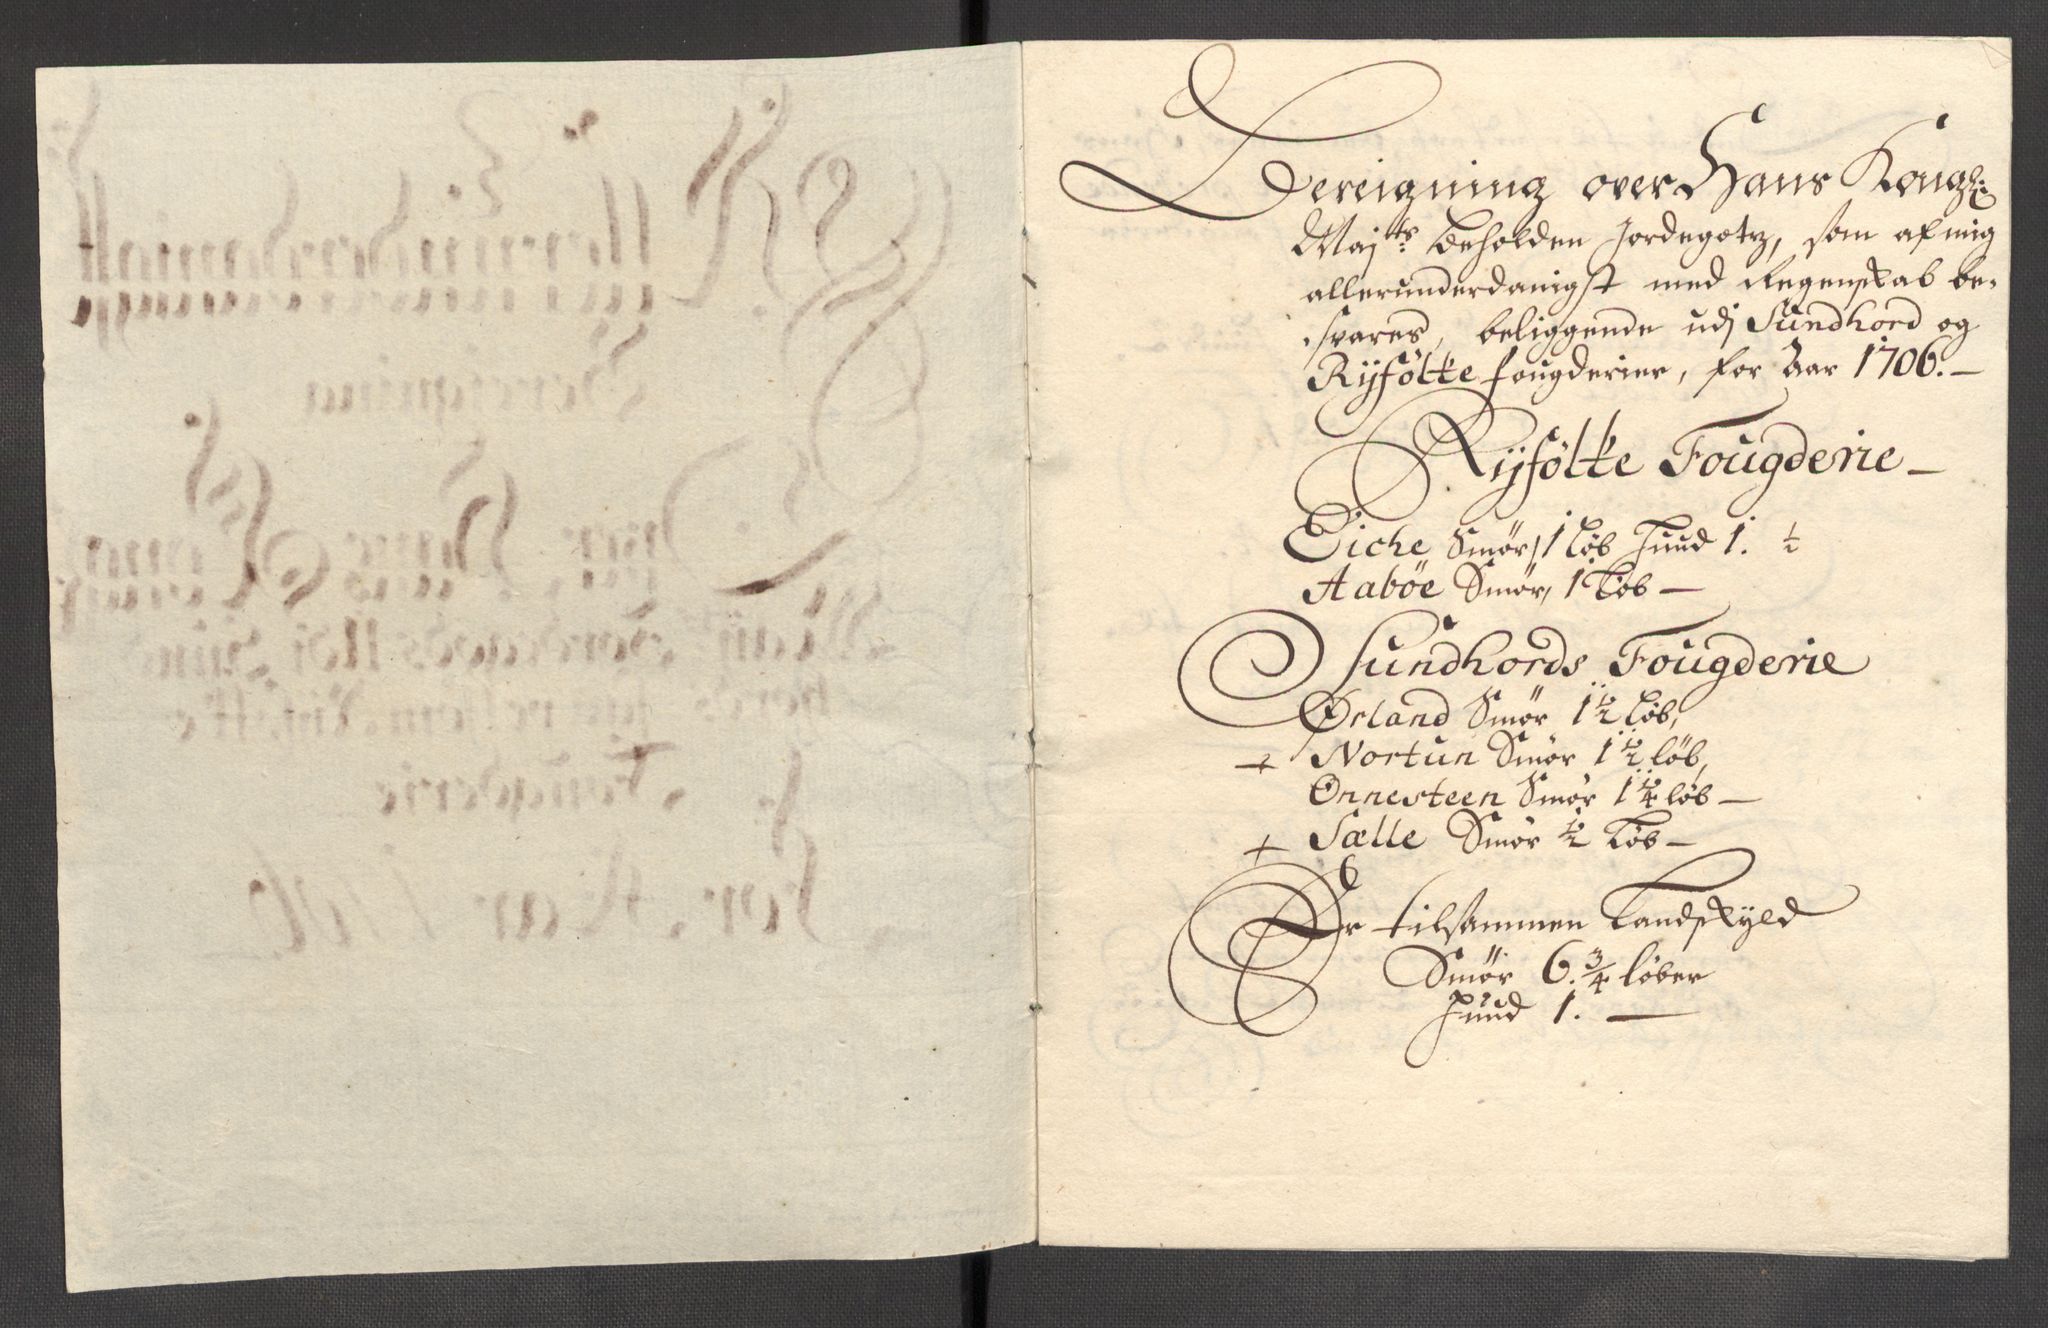 Bereigning over Hans Kongl:
Maj:ts beholden Jordegotz, som af mig
allerunderdanigst med Regenskab be-
svares, beliggende udj Sundhord og
Rÿfölke fougderier, for Aar 1706. —
Rÿfölke Fougderie —
Eiche Smör, 1 Löb Huud 1. ½
Aaböe Smör, 1 Löb —
Sundhords Fougderie
Ørland Smör 1½ Löb,
+ Nortun Smör 1½ löb,
Onnesteen Smör 1¼ löb —
+ Sælle Smör ½ Löb —
Er tilsammen Landskyld
Smör 6. ¾ löber
Huud 1. —